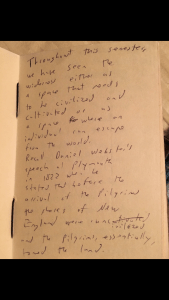 Throughout this semester,
we have seen the
wilderness either as
a space that needs
to be civilized and
cultivated or as
a space where an
individual can escape
from the world.
Recall Daniel Webster's
speech at Plymouth
in where he
states that before the
arrival of the Pilgrims
the shores of New
England were
and the Pilgrims, essentially,
tamed the land.